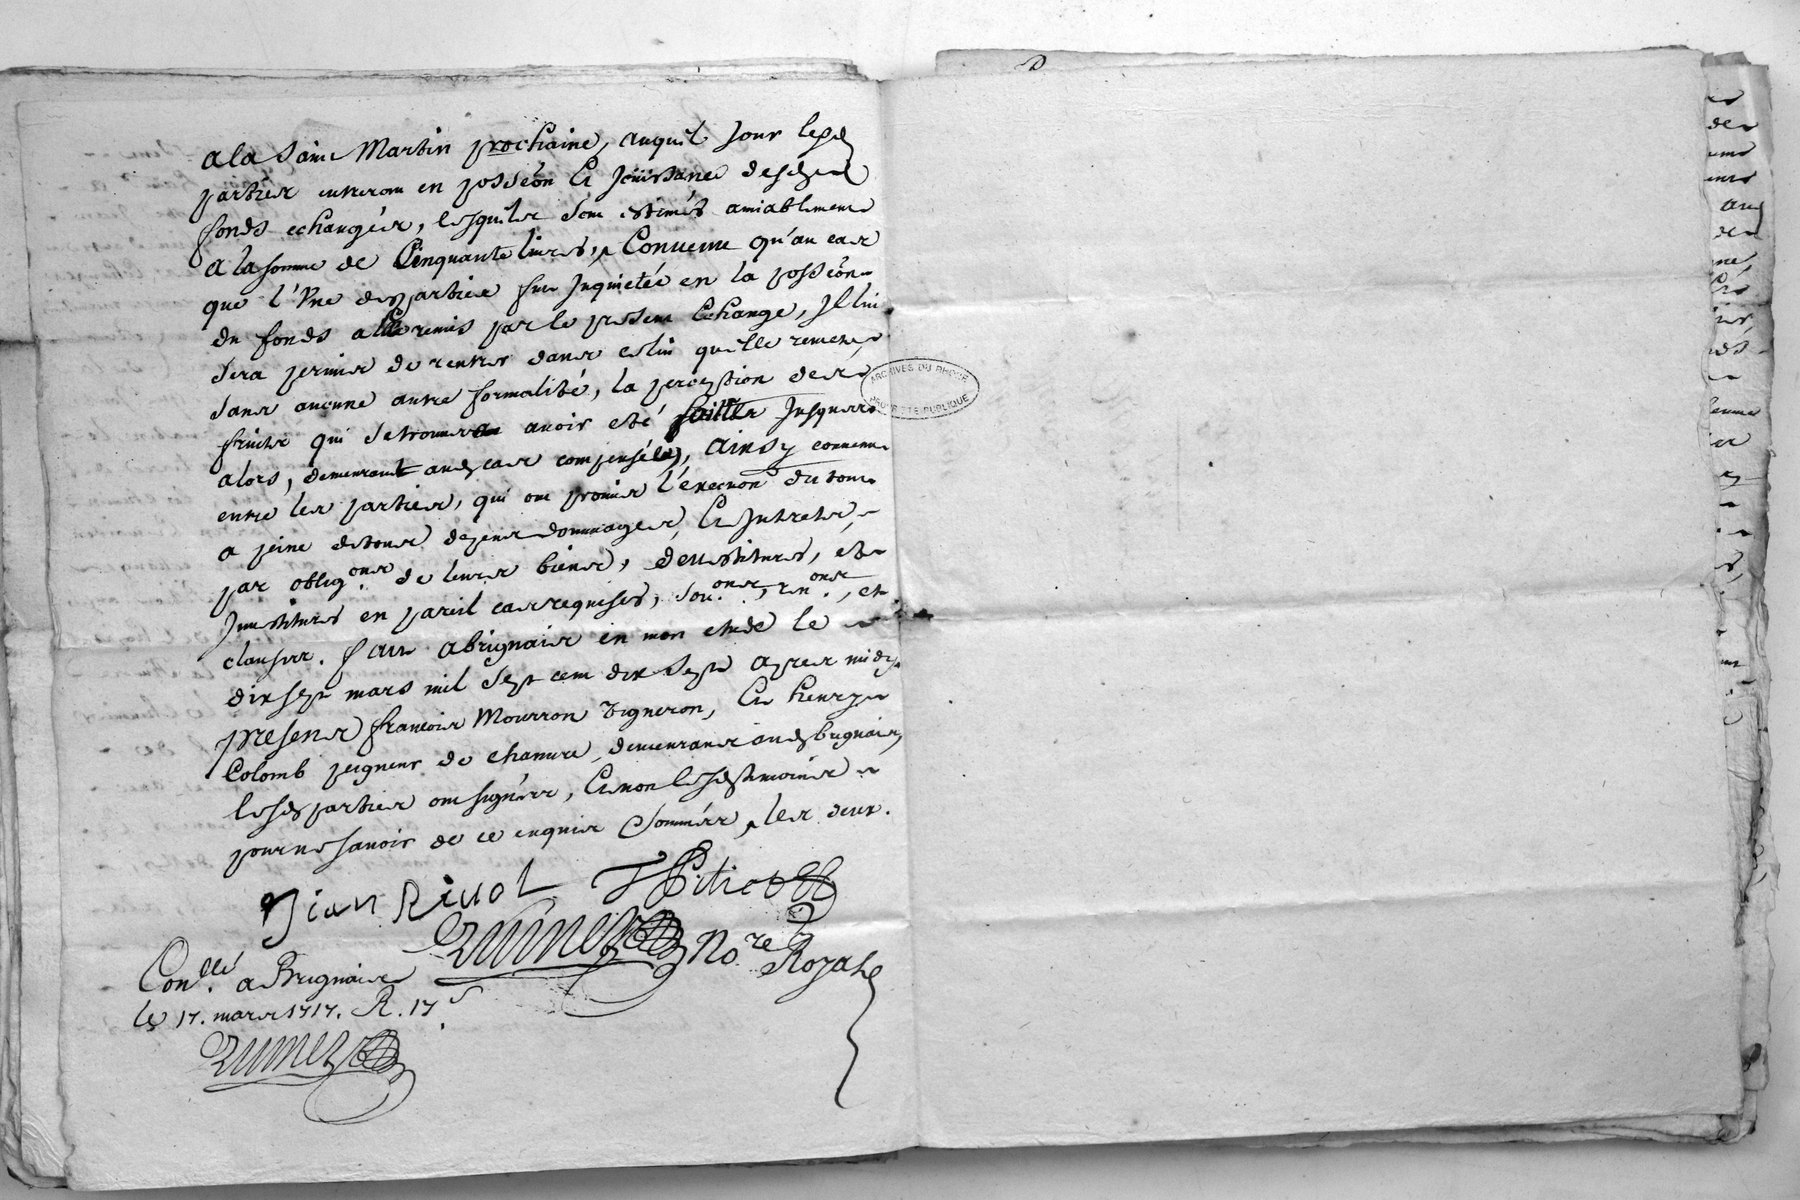 a la Saint Martin prochaine, auquel Jour lesd
parties entreront en posseôn Et Jouissance desd
fonds echangés, lesquels sont estimés amiablement
a la somme de Cinquante livres, Convenu qu'au cas
que l'Une desd parties fut Inquietée en la posseôn
du fonds a Elle remis par le present Echange, Il lui
sera permis de rentrer dans celui quelle remet,
sans aucune autre formalité, la perception des
fruits qui se trouvera avoir esté faitte Jusques
alors, demeurant aud cas compensée, Ainsy convenu
entre les parties, qui ont promis l'execuôn du tout
a peine de tous depens dommages, Et Interets,
par oblig.ons de leurs biens, devestitures, et
Investitures en pareil cas requises, sou.ons, ren.ons, et
clauses. fait a Brignais en mon etude le
dix sept mars mil Sept cent dix Sept apres midy
presens francois Mourron Vigneron, Et henry
Colomb peigneur de chanvre, demeurans aud brignais,
lesd parties ont signées, Et non lesd temoins
pour ne savoir de ce enquis Sommés, les deux.
Jian Rivol J Pitiot
No.re Royal
Con.llé a Brignais
le 17. mars 1717. R. 17 s
ARCHIVES DU RHONE
PROPRIETE PUBLIQUE